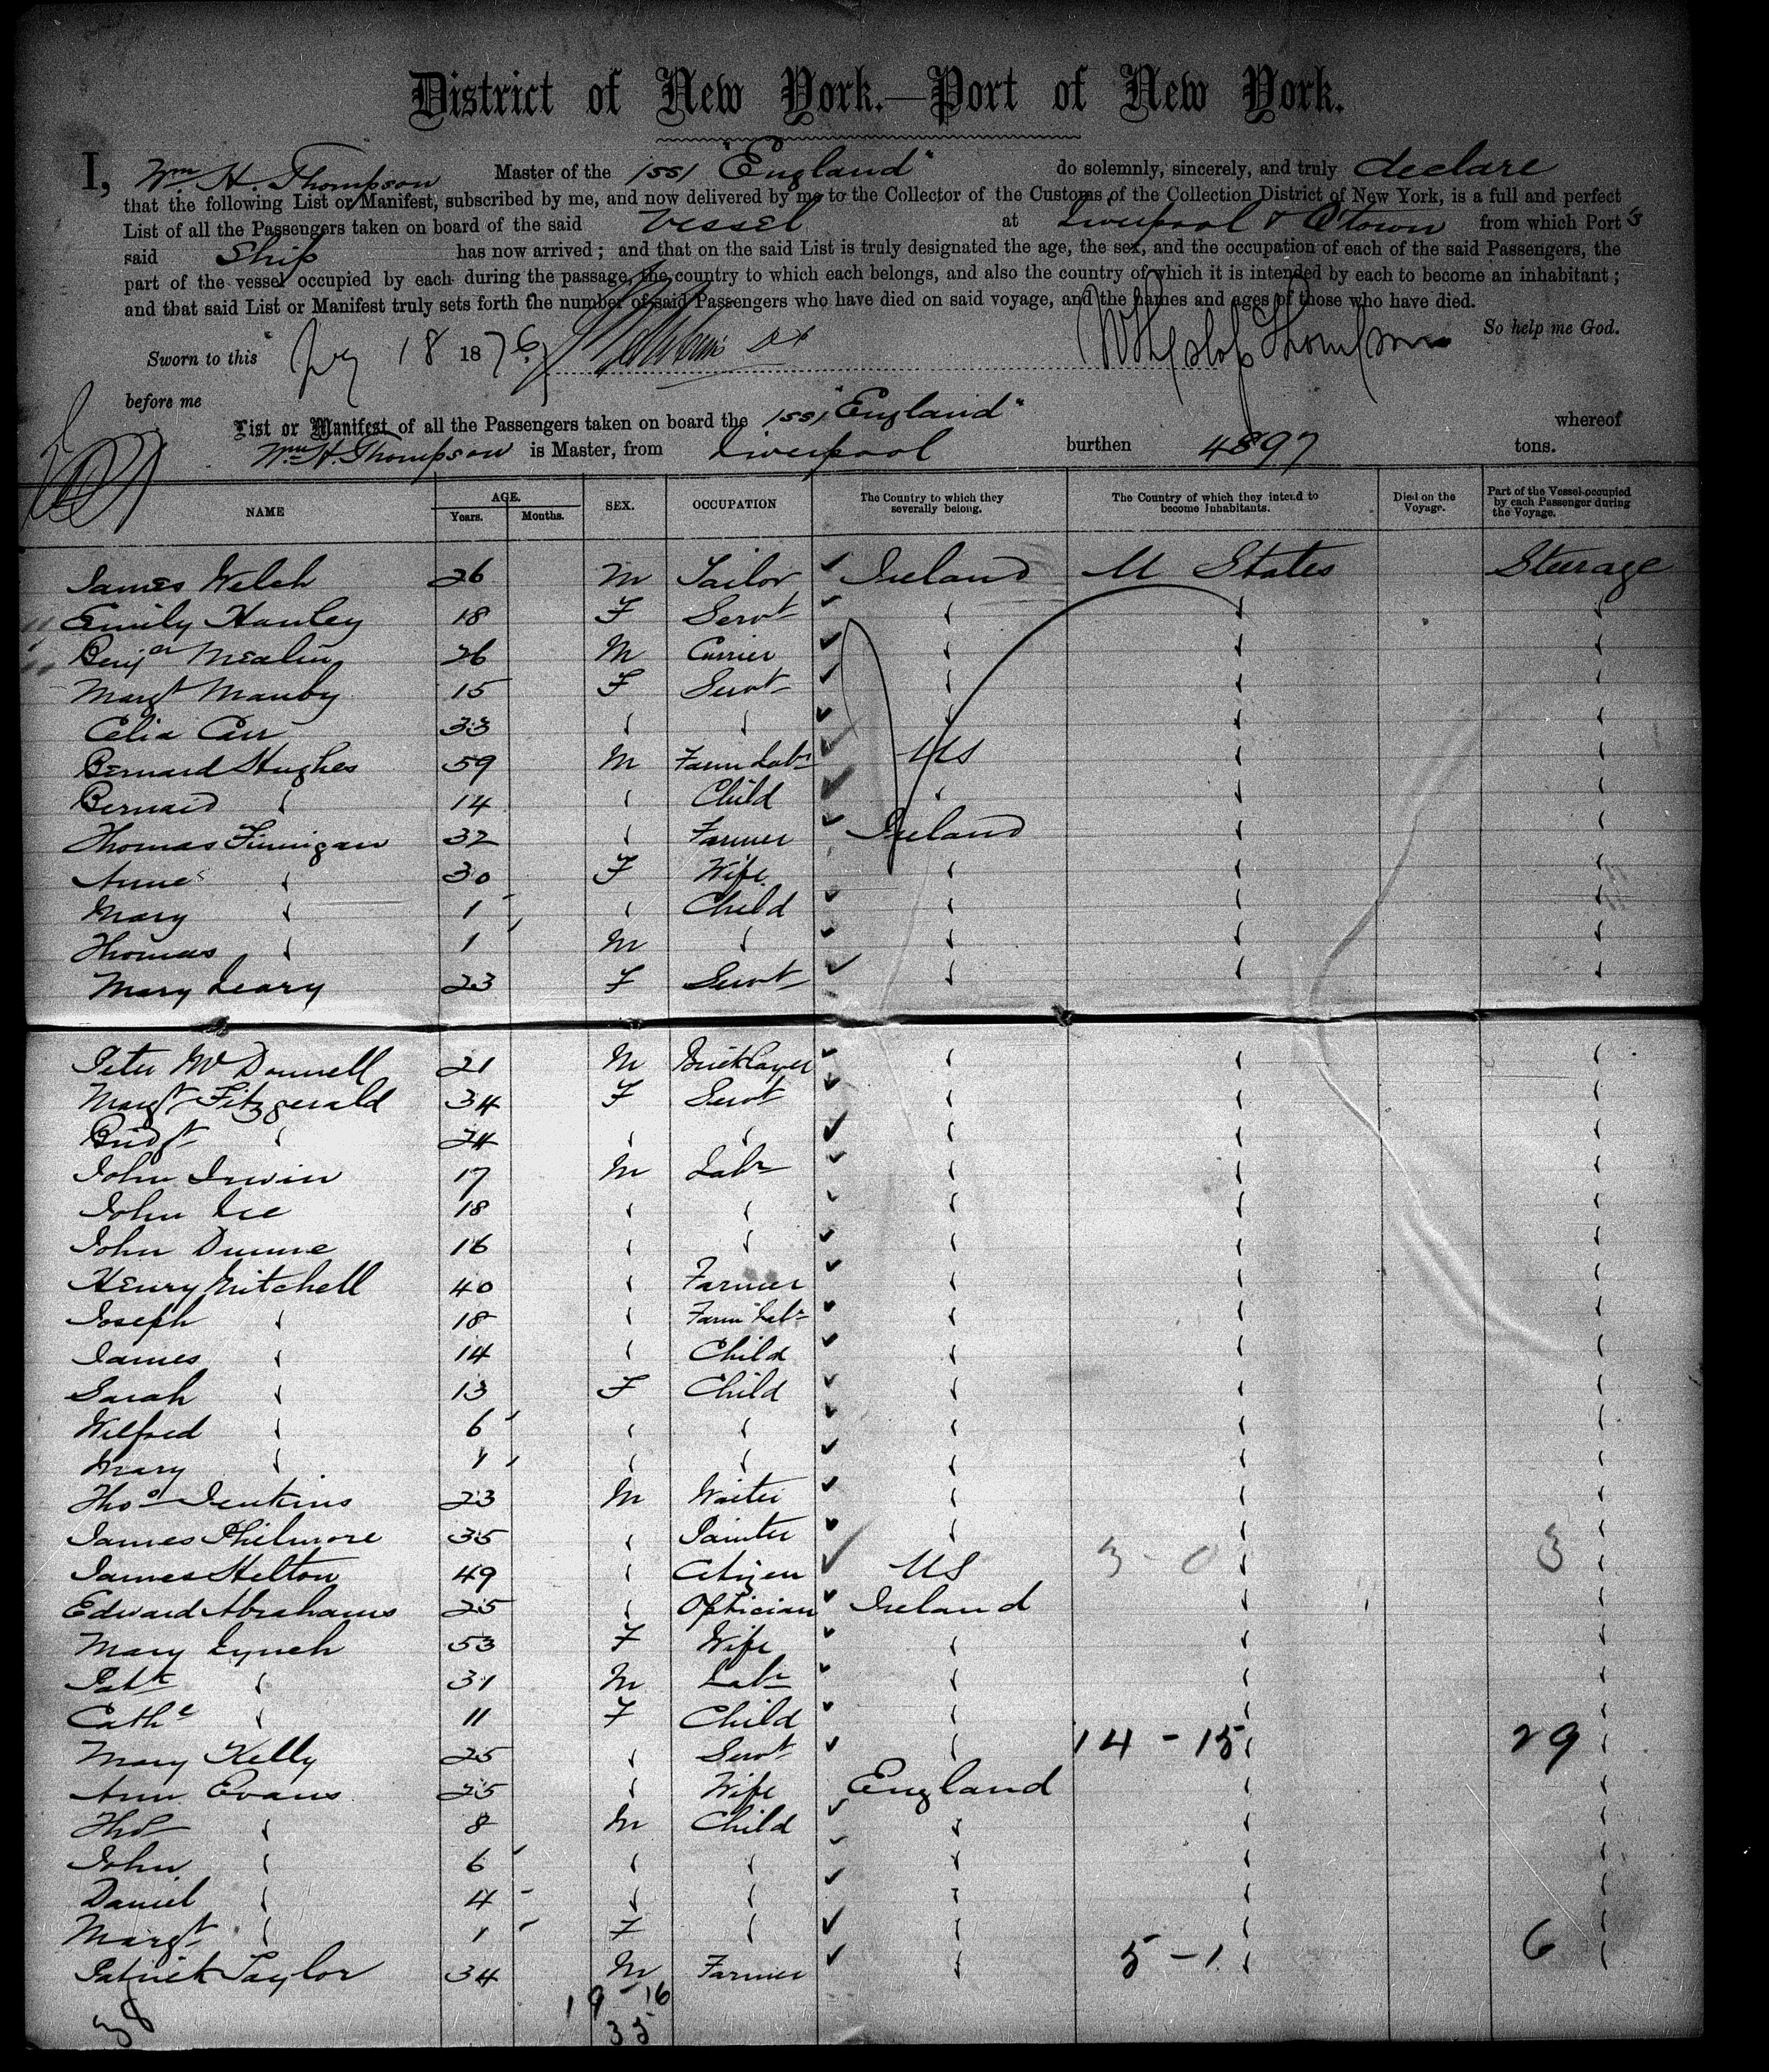 District of New York.—Port of New York.
I, Wm. H. Thompson Master of the 1ssl "England" do solemnly, sincerely, and truly declare
that the following List or Manifest, subscribed by me, and now delivered by me to the Collector of the Customs of the Collection District of New York, is a full and perfect
List of all the Passengers taken on board of the said Vessel at Liverpool & Q'town from which Ports
said Ship has now arrived; and that on the said List is truly designated the age, the sex, and the occupation of each of the said Passengers, the
part of the vessel occupied by each during the passage, the country to which each belongs, and also the country of which it is intended by each to become an inhabitant;
and that said List or Manifest truly sets forth the number of said Passengers who have died on said voyage, and the names and ages of those who have died.
So help me God.
Sworn to this 18 1876
before me
List or Manifest of all the Passengers taken on board the 1ssl "England" whereof
Wm. H. Thompson is Master, from Liverpool burthen 4897 tons.
NAME AGE. Years. Months. SEX. OCCUPATION The Country to which they severally belong. The Country of which they intend to become Inhabitants. Died on the Voyage. Part of the Vessel occupied by each Passenger during the Voyage.
James Welch 26 M Tailor Ireland U States Steerage
Emily Hanley 18 F Servt
Benjn McAlin 26 M Currier
Margt Manby 15 F Servt
Celia Carr 33
Bernard Hughes 59 M Farm Labr US
Bernard 14 Child
Thomas Finnigan 32 Farmer Ireland
Anne 30 F Wife
Mary 1 Child
Thomas 1 M
Mary Leary 23 F Servt
Peter McDonnell 21 M Bricklayer
Margt Fitzgerald 34 F Servt
Bridgt 24
John Irwin 17 M Labr
John Lee 18
John Dunne 16
Henry Mitchell 40 Farmer
Joseph 18 Farm Labr
James 14 Child
Sarah 13 F Child
Wilfred 6
Mary
Thos Jenkins 23 M Waiter
James Philmore 35 Painter
James Helton 49 Citizen US 3-0 3
Edward Abrahams 25 Optician Ireland
Mary Lynch 53 F Wife
Patk 31 M Labr
Cathe 11 F Child
Mary Kelly 25 Servt 14-15 29
Ann Evans 25 Wife England
Thos 8 M Child
John 6
Daniel 4
Margt 1 F
Patrick Taylor 34 M Farmer 5-1 6
19-16
38 35